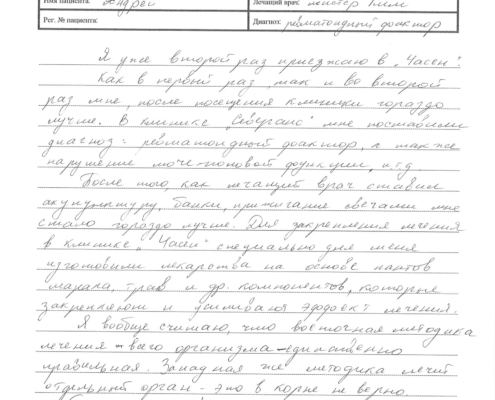 Имя пациента: Андрей Лечащий врач: мистер Ким
Рег. № пациента: Диагноз: ревматоидный фоактор
Я уже второй раз приезжаю в „Часен".
Как в первый раз, так и во второй
раз мне, после посещения клиники гораздо
лучше. В клинике мне поставили
диагноз: ревматоидный фоактор, а так же
нарушение моче-половой функции, и.т.д
После того, как лечащий врач ставил
акупунктуру, банки, прижигание свечами мне
стало гораздо лучше. Для закрепления лечения
в клинике „Часен" специально для меня
изготовили лекарства на основе пантов
марала, трав и др. компонентов, которые
закрепляют и усиливают эффект лечения.
Я вообще считаю, что восточная методика
лечения всего организма – единственно
правильная. Западная же методика лечит
отдельный орган – это в корне не верно.